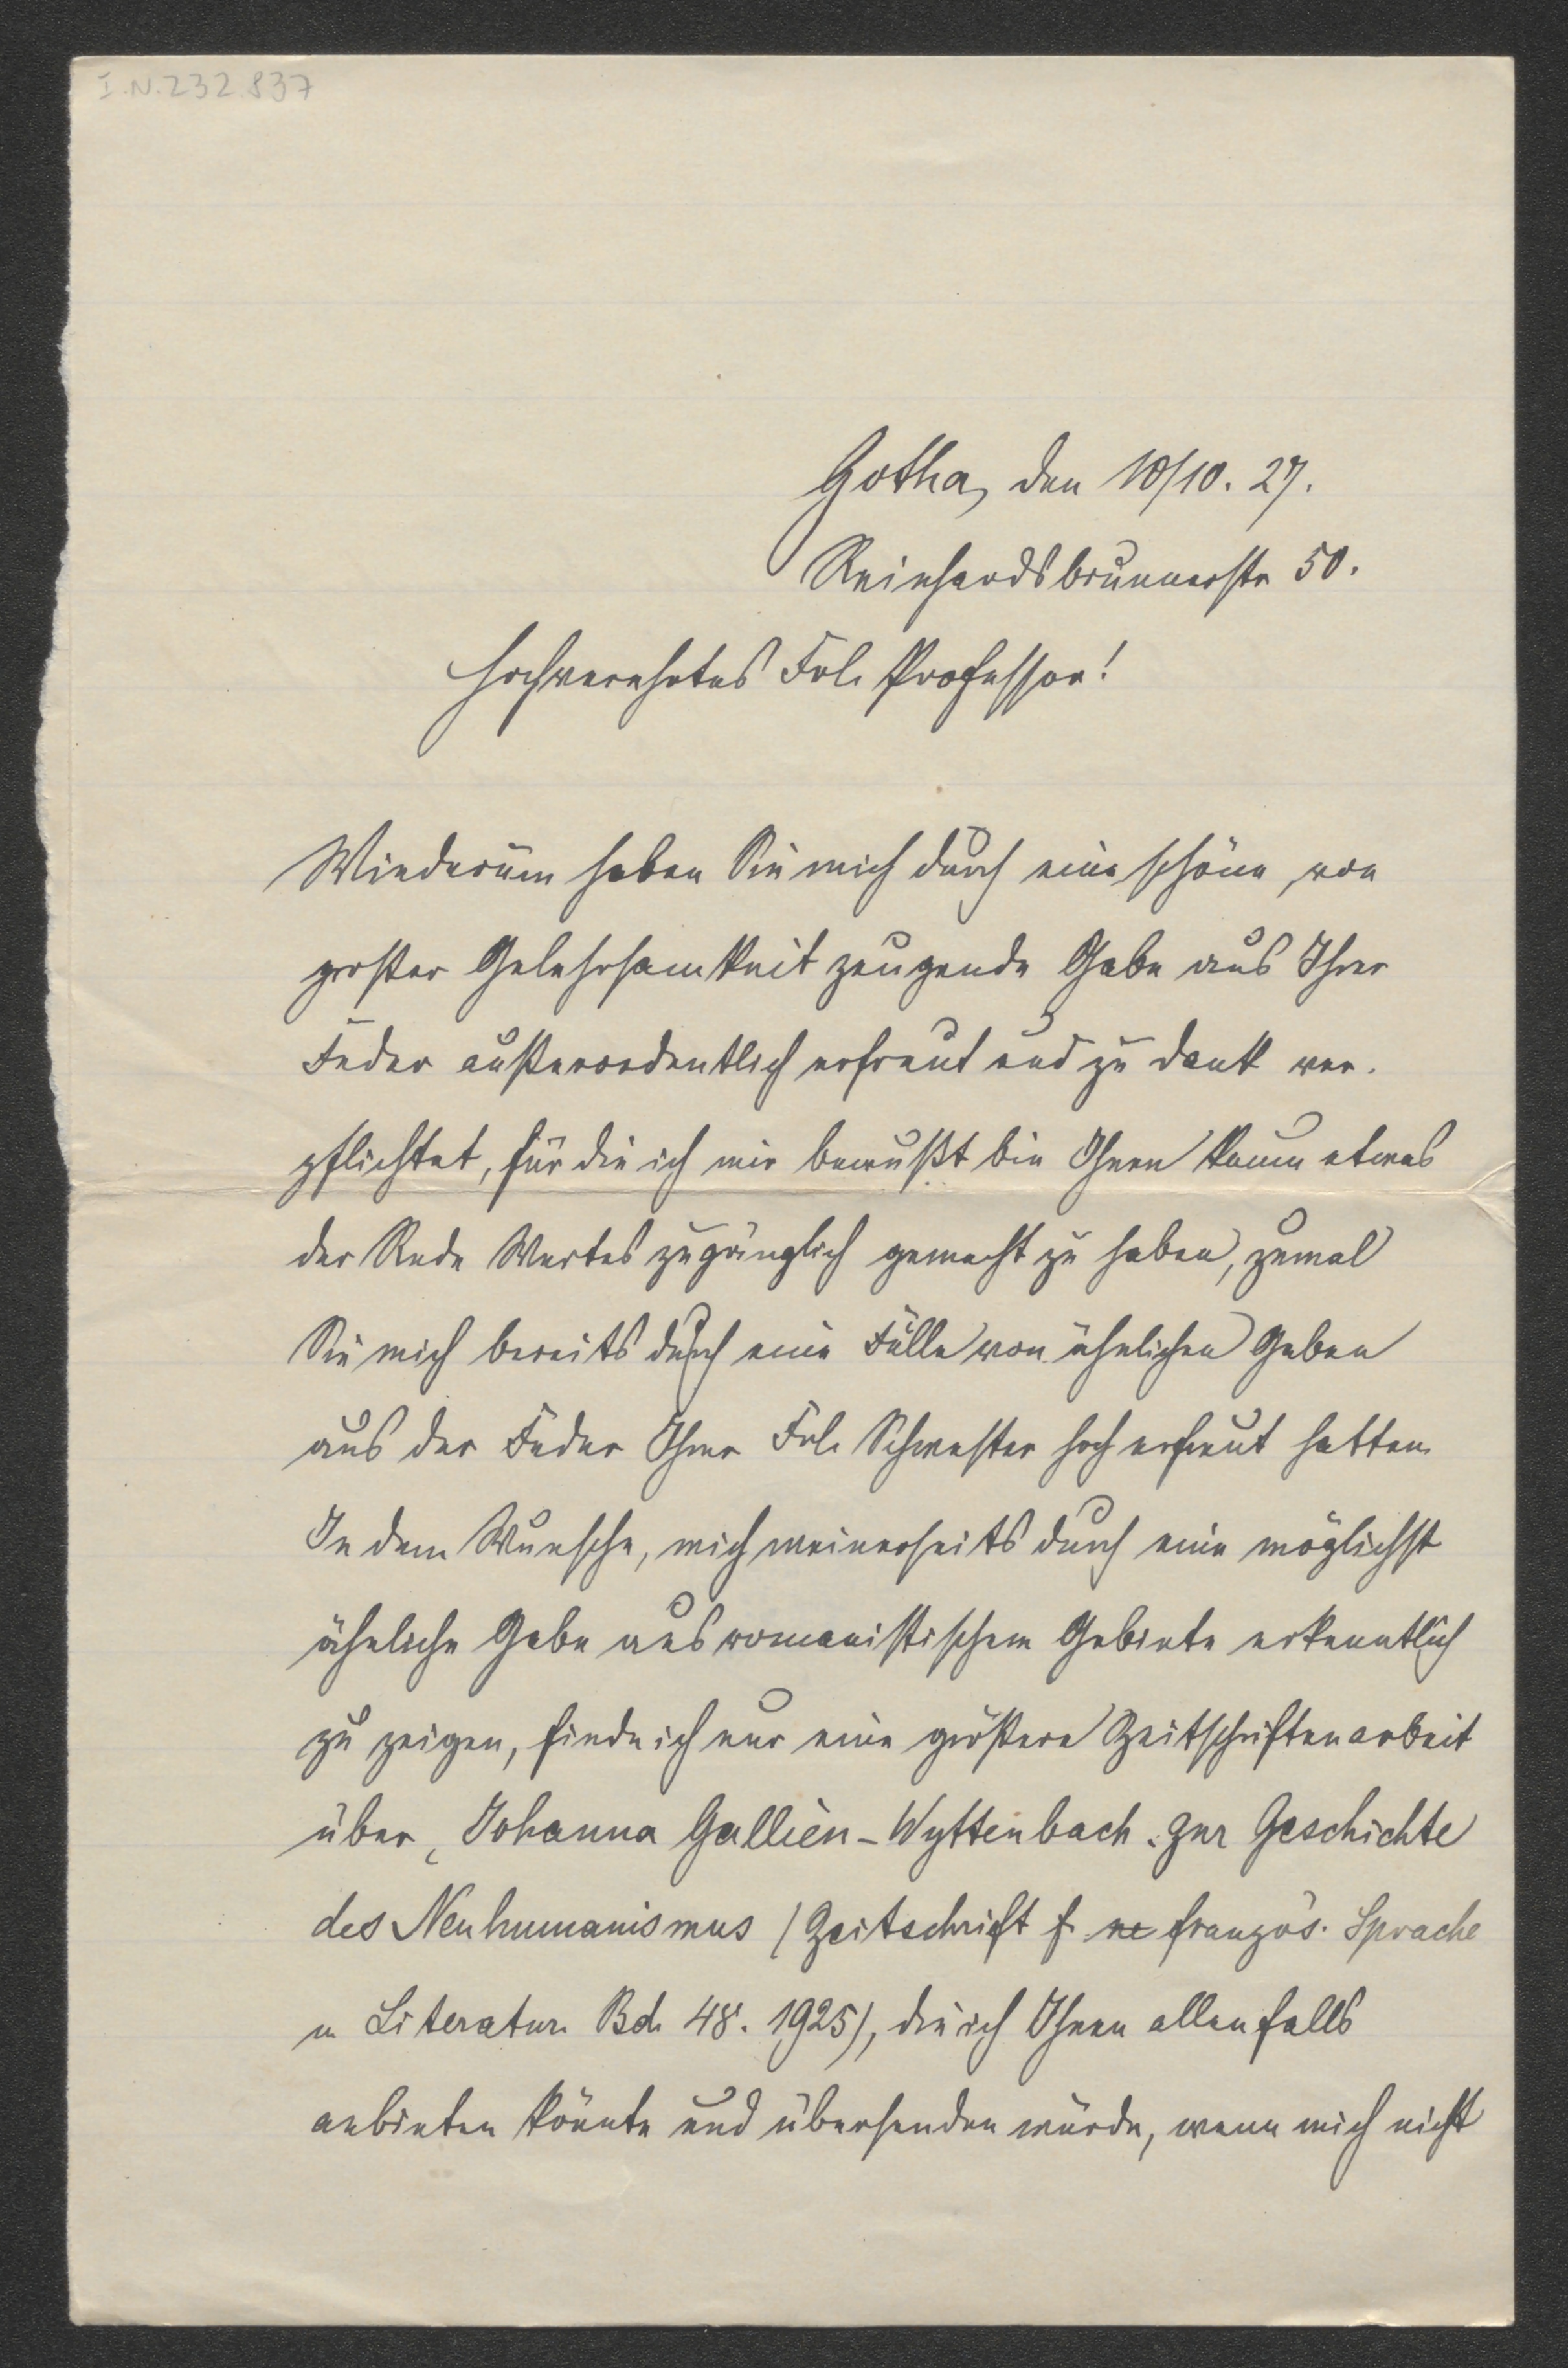 I.N.232.837
Gotha, den 10/10. 27.
Reinhardsbrunnerstr 50.
Hochverehrtes Frl. Professor!
Wiederum haben Sie mich durch eine schöne, von
großer Gelehrsamkeit zeugende Gabe aus Ihrer
Feder außerordentlich erfreut und zu Dank ver-
pflichtet, für die ich mir bewußt bin Ihnen kaum etwas
der Rede Wertes zugänglich gemacht zu haben, zumal
Sie mich bereits durch eine Fülle von ähnlichen Gaben
aus der Feder Ihrer Frl. Schwester hoch erfreut hatten.
In dem Wunsche, mich meinerseits durch eine möglichst
ähnliche Gabe aus romanistischem Gebiete erkenntlich
zu zeigen, finde ich nur eine größere Zeitschriftenarbeit
über „Johanna Gallien-Wyttenbach. Zur Geschichte
des Neuhumanismus (Zeitschrift f. ne französ. Sprache
u Literatur. Bd. 48. 1925), die ich Ihnen allenfalls
anbieten könnte und übersenden würde, wenn mich nicht